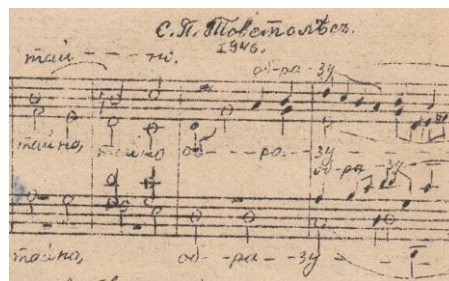 С. П. Товстолѣсъ.
1946.
тай - - - но.
об-ра-зу
тайно, тайно об - - - ра - - - зу
об-ра - зу
тайно, об - - ра - - зу